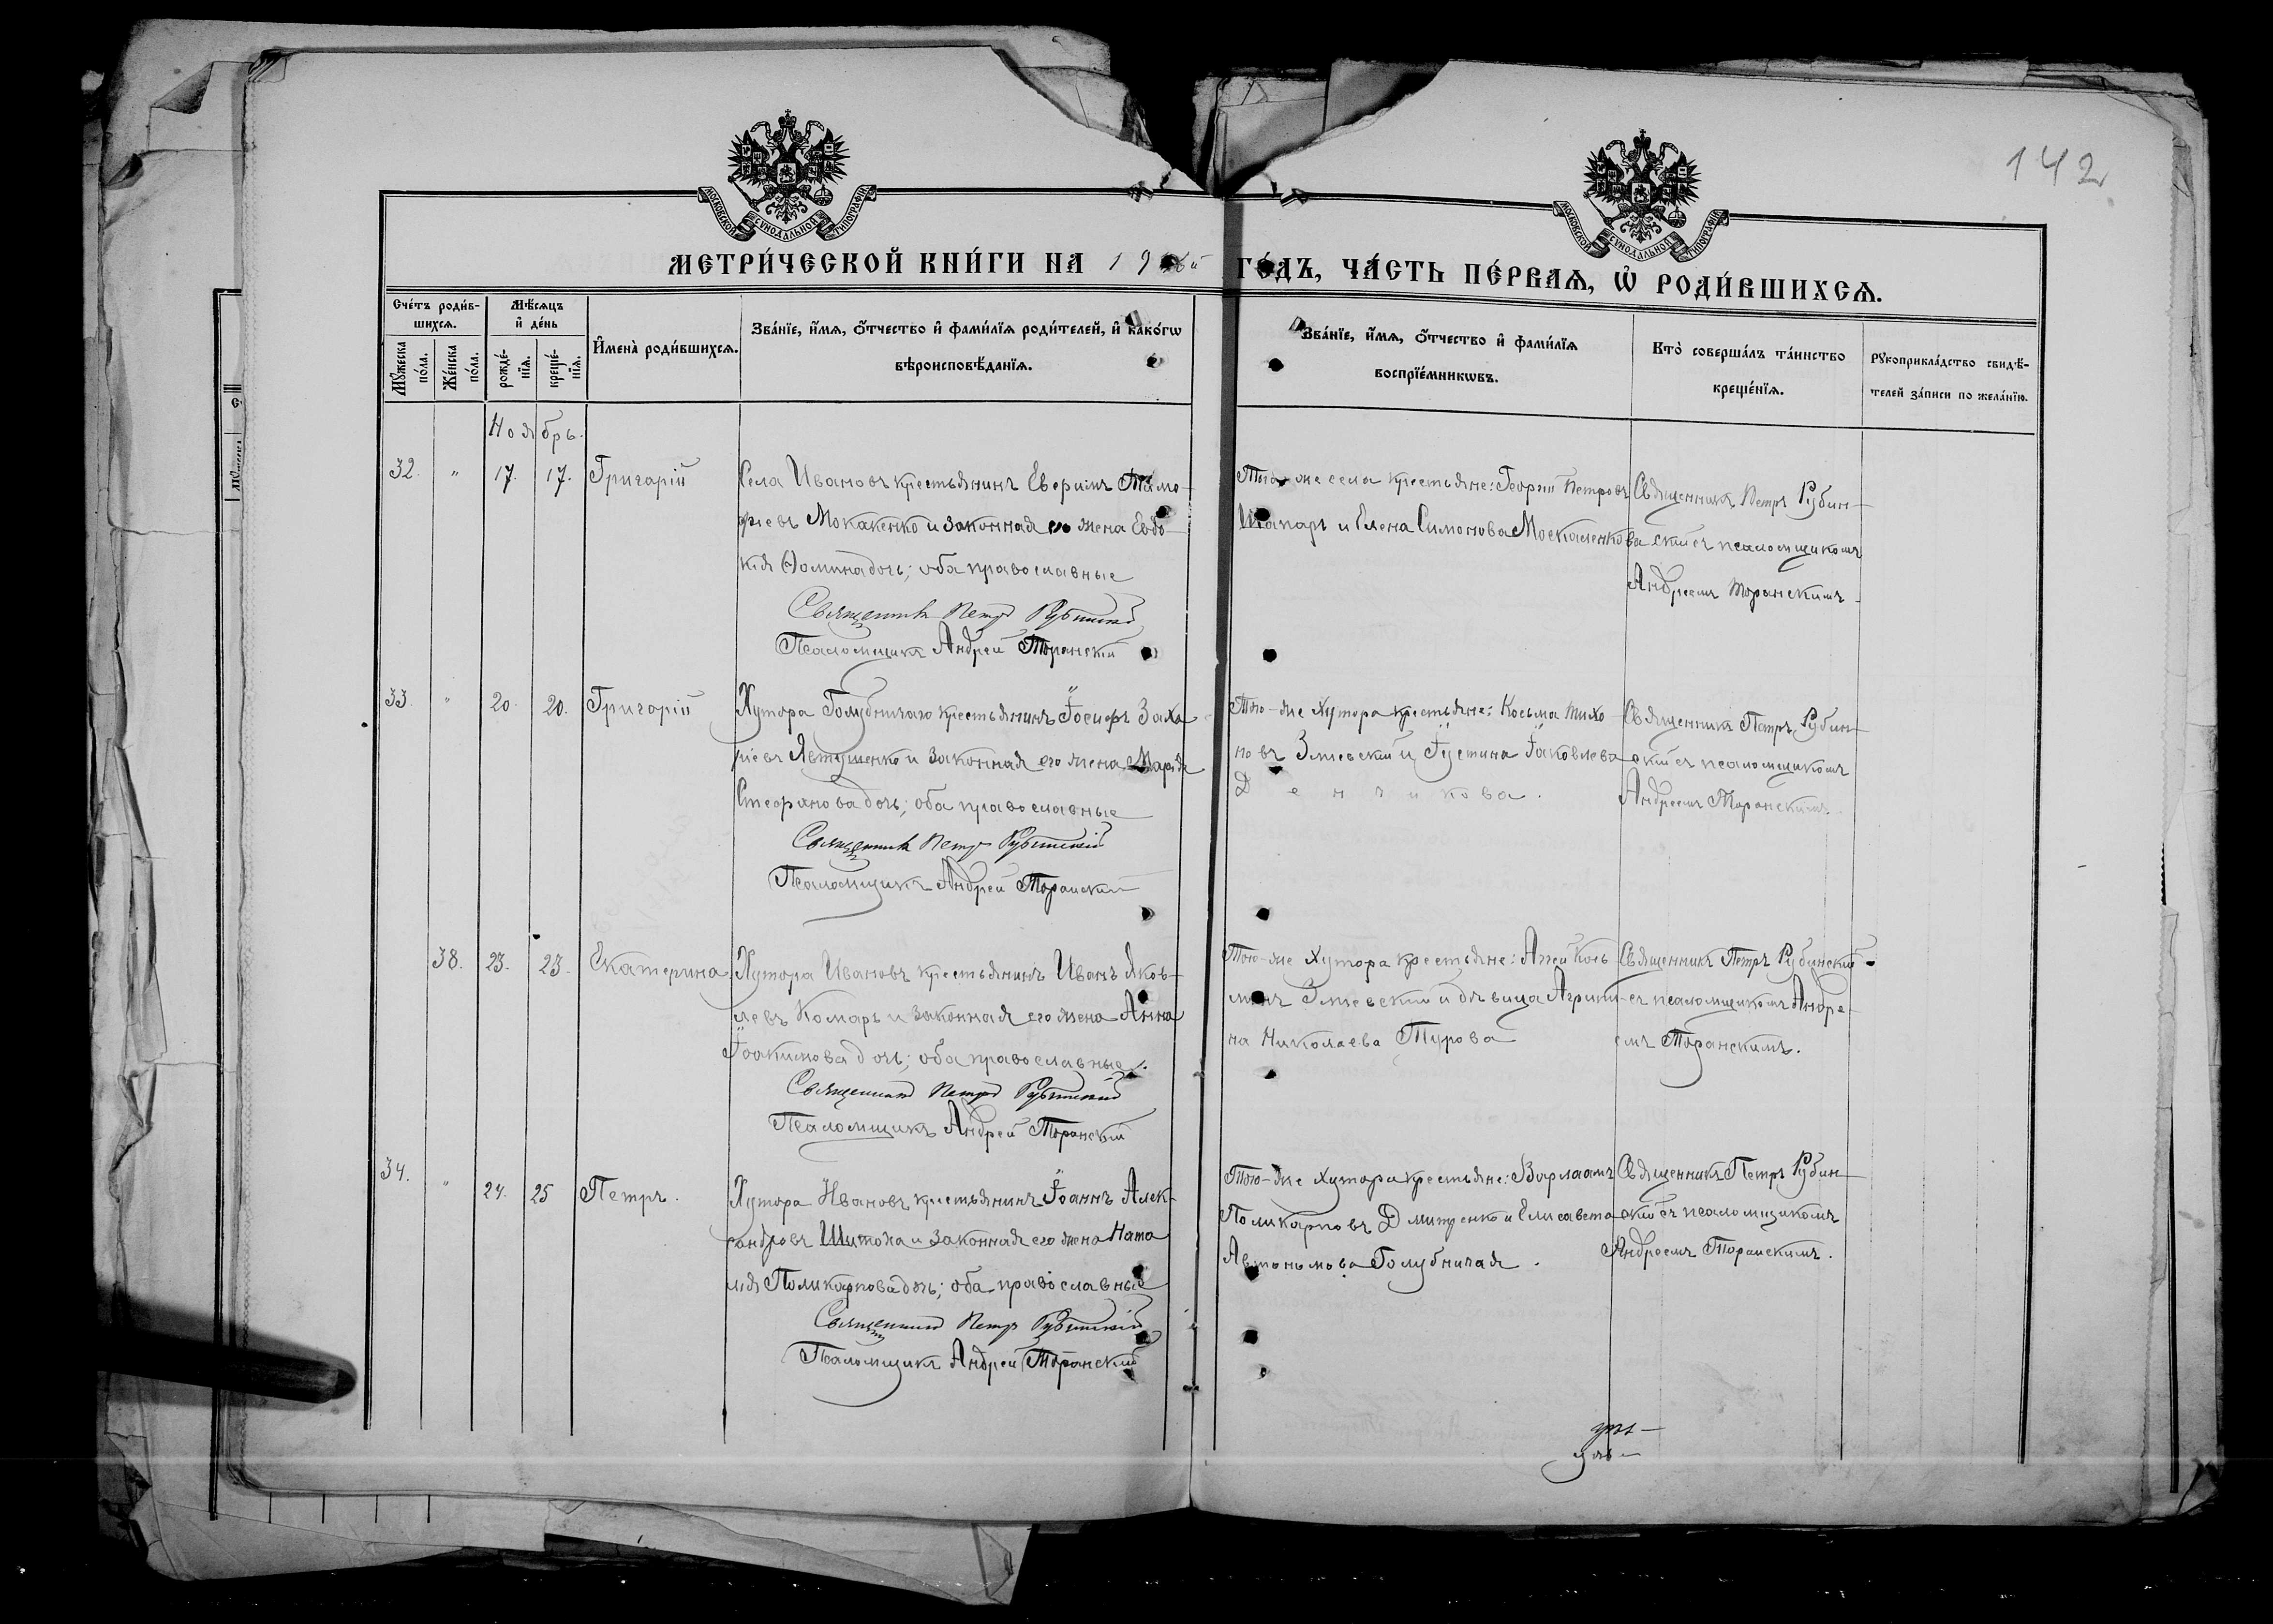 142
МОСКОВСКОЙ СѴНОДАЛЬНОЙ ТИПОГРАФІИ
МОСКОВСКОЙ СѴНОДАЛЬНОЙ ТИПОГРАФІИ
МЕТРИ́ЧЕСКОЙ КНИ́ГИ НА 19 ГО́ДЪ, ЧА́СТЬ ПЕ́РВАѦ, Ѡ҆ РОДИ́ВШИХСѦ.
Сче́тъ роди́в-
шихсѧ.
Мѣ́сѧцъ
и҆ де́нь
Мꙋ́жеска по́ла.
Же́нска по́ла.
рожде́-
нїѧ.
креще́-
нїѧ.
И҆мена̀ роди́вшихсѧ.
Зва́нїе, и҆́мѧ, ѻ҆́тчество и҆ фами́лїѧ роди́телей, и҆ како́гѡ
вѣроисповѣ́данїѧ.
Зва́нїе, и҆́мѧ, ѻ҆́тчество и҆ фами́лїѧ
воспрїе́мникѡвъ.
Кто̀ соверша́лъ та́инство
креще́нїѧ.
Рꙋкоприкла́дство свидѣ́-
телей за́писи по жела́нїю.
Ноябрь.
32. " 17. 17. Григорій
Села Ивановъ крестьянинъ Ефримъ Тимо-
фіевъ Мокаленко и законная его жена Евдо-
кія Ѳомина дочь; оба православные
Священникъ Петръ Рубинскій
Псаломщикъ Андрей Торанскій
Того-же села крестьяне: Георгій Петровъ
Шапарь и Елена Симонова Москаленкова
Священникъ Петръ Рубин-
скій съ псаломщикомъ
Андреемъ Торанскимъ
33. " 20. 20. Григорій
Хутора Голубничаго крестьянинъ Іосифъ Заха-
ріевъ Явтушенко и законная его жена Марія
Стефанова дочь; оба православные
Священникъ Петръ Рубинскій
Псаломщикъ Андрей Торанскій
Того-же Хутора крестьяне: Косьма Тихо-
новъ Зміевскій и Іустина Іаковлева
Денчикова.
Священникъ Петръ Рубин-
скій съ псаломщикомъ
Андреемъ Торанскимъ.
38. 23. 23. Екатерина
Хутора Ивановъ крестьянинъ Иванъ Яков-
левъ Комарь и законная его жена Анна
Іоакимова дочь; оба православные.
Священникъ Петръ Рубинскій
Псаломщикъ Андрей Торанскій
Того-же Хутора крестьяне: Агей Кось
минъ Зміевскій и дѣвица Агрипи-
на Николаева Турова
Священникъ Петръ Рубинскій
съ псаломщикомъ Андре-
емъ Торанскимъ.
34. " 24. 25 Петръ.
Хутора Ивановъ крестьянинъ Іоаннъ Алек-
сандровъ Шитоха и законная его жена Ната
лія Поликарпова дочь; оба православные
Священникъ Петръ Рубинскій
Псаломщикъ Андрей Торанскій
Того-же хутора крестьяне: Варлаамъ
Поликарповъ Дмитренко и Елисавета
Автономова Голубничая.
Священникъ Петръ Рубин-
скій съ псаломщикомъ
Андреемъ Торанскимъ.